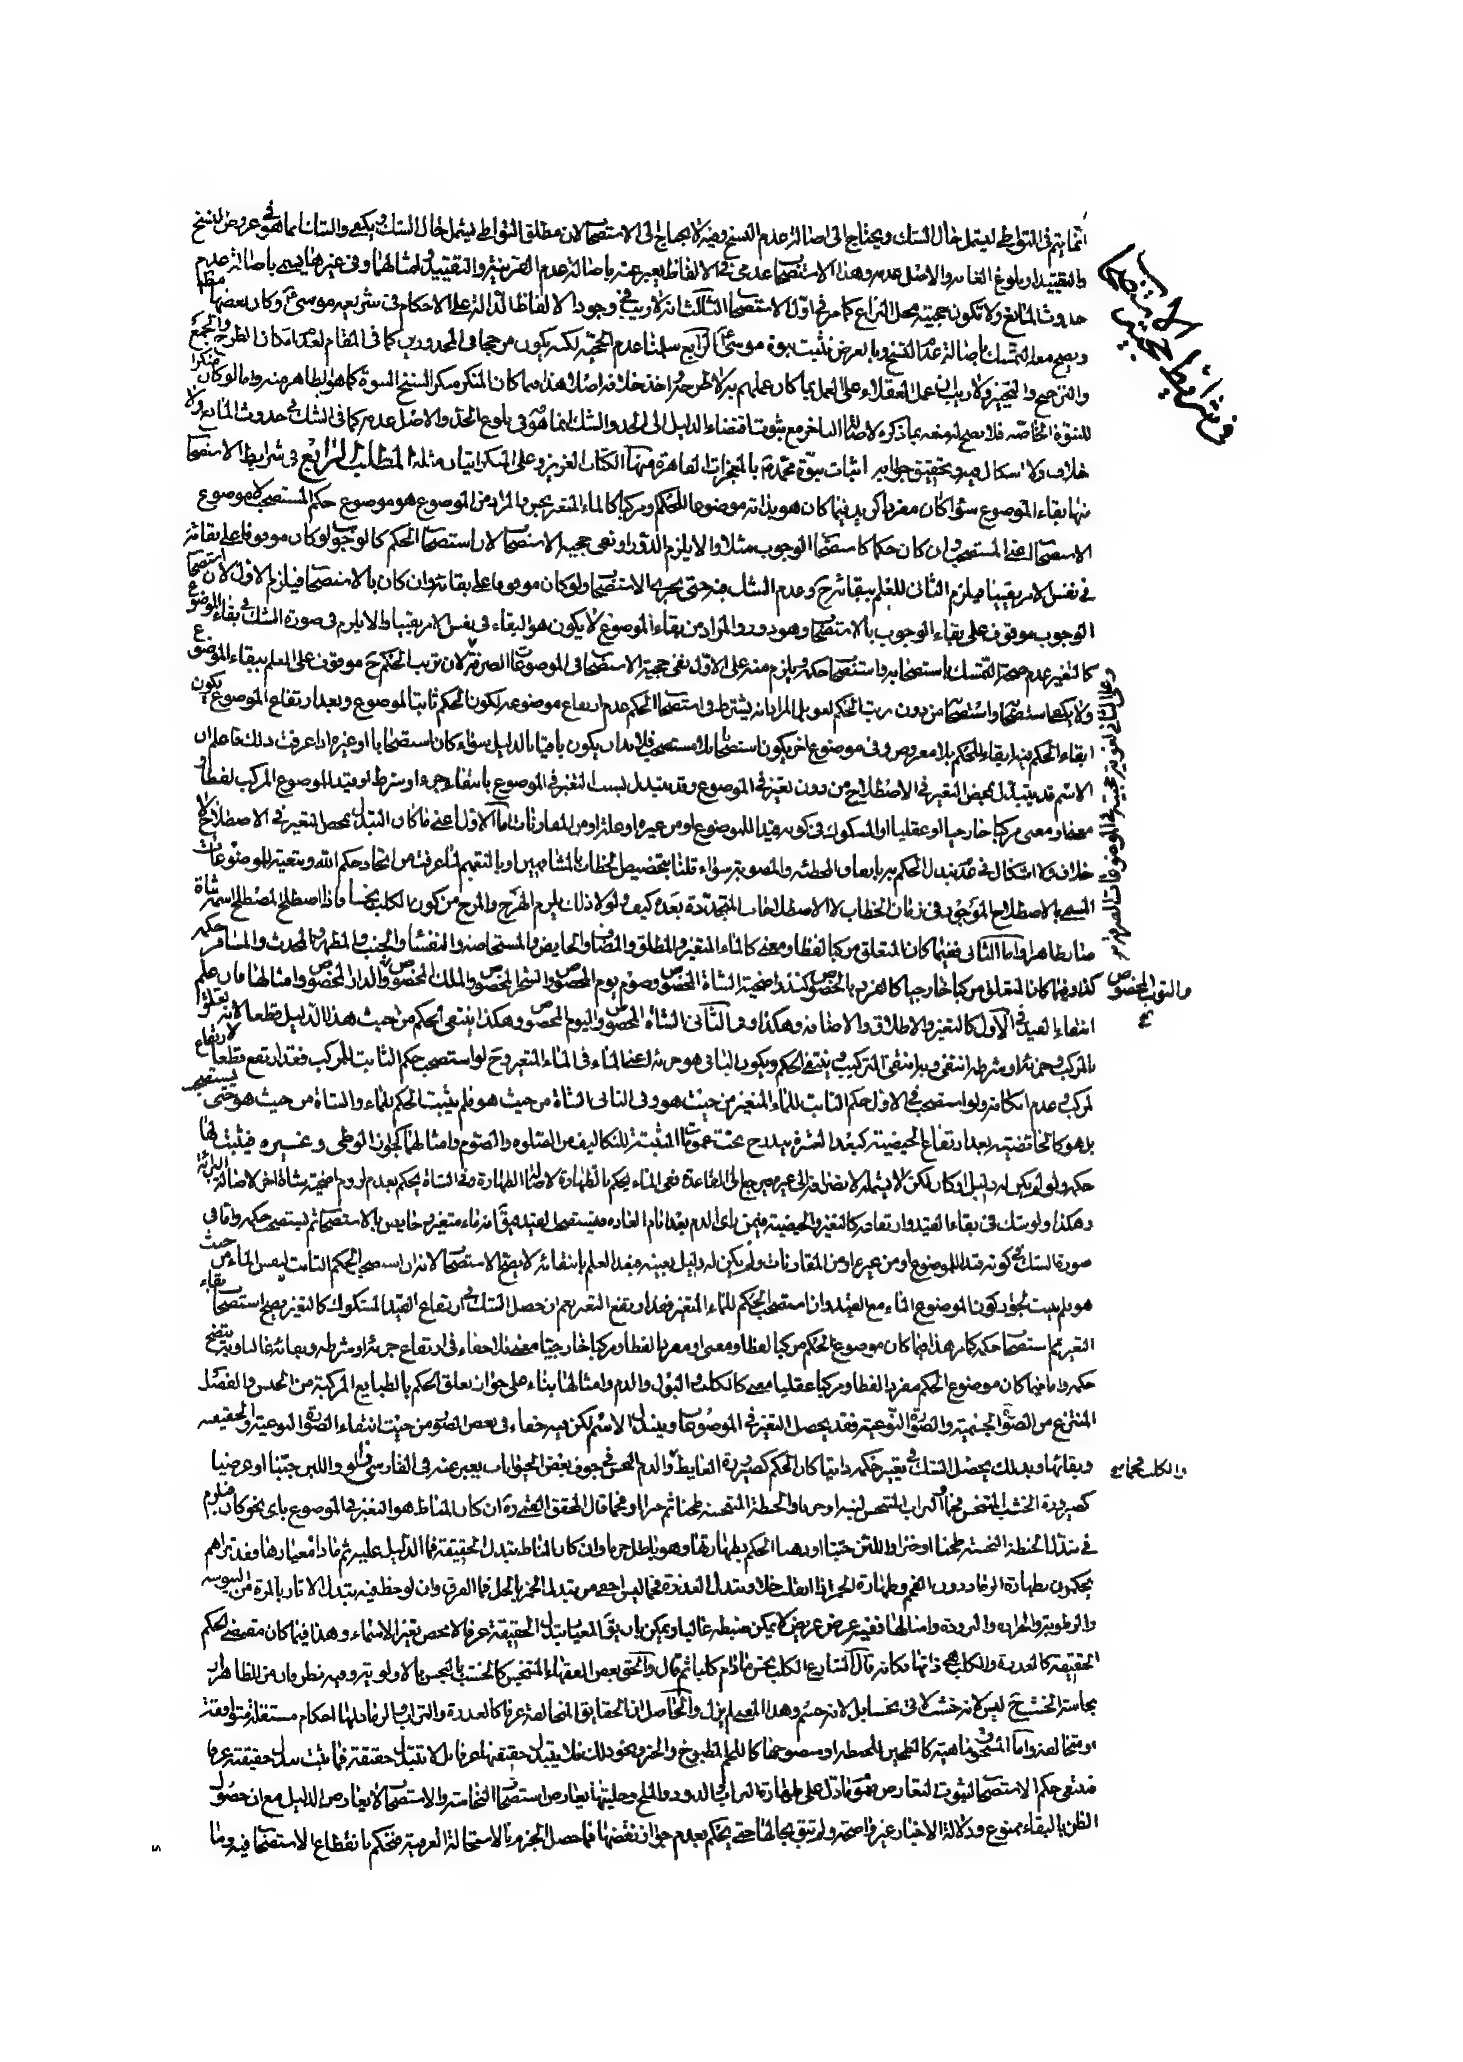 انما يتم في التواطي ليشمل حال الشك ويحتاج الى اصالة عدم النسخ وفيه لا يحتاج الى الاستصحاب لان مطلق التواطي ليشمل حال الشك ويكفي والشك انما هو في عروض النسخ
والتقييد او بلوغ الغاية والاصل عدمه وهذا الاستصحاب عدمي في الالفاظ يعبر عنه باصالة عدم القرينة والتقييد وامثالها وفي غيرها يسمى باصالة عدم
حدوث المانع ولا تكون حجيته محل النزاع كما مر في اول الاستصحاب الثالث انه لا ريب في وجود الالفاظ الدالة على الاحكام في شريعة موسى ع وكان بعضها مطلقا
ويصح معه التمسك باصالة عدم النسخ وبالعرض تثبت نبوة موسى ع الرابع سلمنا عدم الحجية لكنه يكون مرجحا في المحذورين كما في المقام لعدم امكان الطرح والجمع
والترجيح والتخيير ولا ريب ان عمل العقلاء على العمل بما كان عملهم به لا طرحه واخذ خلافه اصلا هذا فيما كان المنكر منكر النسخ النبوة كما هو الظاهر منه واما لو كان منكرا
للنبوة الخاصة فلا يصح له منعه بما ذكره لاصالة التاخر مع ثبوت اقتضاء الدليل الى الحد والشك انما هو في بلوغ الحد والاصل عدمه كما في الشك في حدوث المانع ولا
خلاف ولا اشكال فيه وتحقيق جوابه اثبات نبوة محمد ص بالمعجزات القاهرة ومنها الكتاب العزيز وعلى المنكر اتيان مثله المطلب الرابع في شرايط الاستصحاب
منها بقاء الموضوع سواء كان مفردا كزيد فيما كان هو بذاته موضوعا للحكم او مركبا كالماء المتغير بحبس والمراد من الموضوع هو موضوع حكم المستصحب لا موضوع
الاستصحاب اعني المستصحب وان كان حكما كاستصحاب الوجوب مثلا والا يلزم الدور او نفي حجية الاستصحاب لان استصحاب الحكم كالوجوب لو كان موقوفا على بقائه
في نفس الامر يقينا فيلزم الثاني للعلم ببقائه ح وعدم الشك فيه حتى يجري الاستصحاب ولو كان موقوفا على بقائه وان كان بالاستصحاب فيلزم الاول لان استصحاب
الوجوب موقوف على بقاء الوجوب بالاستصحاب وهو دور والمراد من بقاء الموضوع لا يكون هو البقاء في نفس الامر يقينا والا يلزم في صورة الشك في بقاء الموضوع
كالتغير عدم صحة التمسك باستصحابه واستصحاب حكمه ويلزم منه على الاول نفي حجية الاستصحاب في الموضوعات الصرفة لان ترتب الحكم ح موقوف على العلم ببقاء الموضوع
ولا يكفي استصحابه واستصحابه من دون ترتب الحكم لغو بل المراد انه يشترط في استصحاب الحكم عدم ارتفاع موضوعه لكون الحكم ثابتا لموضوع وبعد ارتفاع الموضوع يكون
ابقاء الحكم فيه ابقاء للحكم بلا معروض وفي موضوع آخر يكون استصحابا بلا مستصحب فلا بد ان يكون باقيا بالدليل سواء كان استصحابا او غيره اذا عرفت ذلك فاعلم ان
الاسم قد يتبدل بمحض التغير في الاصطلاح من دون تغير في الموضوع وقد يتبدل بسبب التغير في الموضوع بانتفاء جزء او شرط او قيد للموضوع المركب لفظا و
معنى او معنى مركبا خارجيا او عقليا او المشكوك في كونه قيدا للموضوع او من غيره او علة او من المقارنات اما الاول اعني ما كان التبدل بمحض التغير في الاصطلاح فلا
خلاف ولا اشكال في عدم تبدل الحكم به باتفاق المخطئة والمصوبة سواء قلنا بتخصيص الخطاب بالمشافهين او بالتعميم لما عرفت من اتحاد حكم الله وتبعيته للموضوعات
المسمى بالاصطلاح الموجود في زمان الخطاب لا الاصطلاحات المتجددة بعده كيف ولولا ذلك يلزم الهرج والمرج من كون الكلب نجسا فاذا اصطلح المصطلح اسمه شاة
صار طاهرا واما الثاني ففيما كان المتعلق مركبا لفظا ومعنى كالماء المتغير والمطلق والمضاف والحايض والمستحاضة والنفساء والجنب والمطهر والمحدث والمسافر حكمه
كذا وفيما كان المتعلق مركبا خارجيا كالفرد بالخصوص كنذر اضحية الشاة المخصوص وصوم يوم المخصوص والشجر المخصوص والملك المخصوص والدار المخصوص وامثالها فان علم
انتفاء القيد في الاول كالتغير والاطلاق والاضافة وهكذا وفي الثاني الشاة المخصوص واليوم المخصوص وهكذا ينتفي الحكم من حيث هذا الدليل قطعا لانه تعلق
بالمركب وجزئه او شرطه انتفى وبه انتفى التركيب وينتفي الحكم ويكون الباقي هو جزئه اعني الماء في الماء المتغير وح لو استصحب حكم الثابت للمركب فقد ارتفع قطعا لارتفاع
المركب وعدم امكانه ولو استصحب في الاول حكم الثابت للماء المتغير من حيث هو وفي الثاني الشاة من حيث هو فلم يثبت الحكم للماء والشاة من حيث هو حتى يستصحب
بل هو كالحائضية بعد ارتفاع الحيضية كبعد العشرة يندرج تحت عمومات المثبتة للتكاليف من الصلوة والصوم وامثالهما كجواز الوطي وغيره فيثبت لها
حكمه ولو لم يكن له دليل او كان لكن لا يشمله لانصرافه الى غيره يرجع الى القاعدة ففي الماء يحكم بالطهارة لاصالة الطهارة وفي الشاة يحكم بعدم لزوم اضحية شاة اخرى لاصالة البرائة
وهكذا ولو شك في بقاء القيد وارتفاعه كالتغير والحيضية فيمن رأى الدم بعد ايام العادة فيستصحب القيد فيقال انه ماء متغير وحايض بالاستصحاب ثم يستصحب حكمه واما في
صورة الشك في كونه قيدا للموضوع او من غيره او من المقارنات ولم يكن له دليل يعينه فبعد العلم بانتفائه لا يصح الاستصحاب لانه ان استصحب الحكم الثابت لنفس الماء من حيث
هو لم يثبت لجواز كون الموضوع الماء مع القيد وان استصحب الحكم للماء المتغير فقد ارتفع التغير نعم ان حصل الشك في ارتفاع القيد المشكوك كالتغير يصح استصحاب بقاء
التغير ثم استصحاب حكمه كما مر هذا فيما كان موضوع الحكم مركبا لفظا ومعنى او مفردا لفظا ومركبا خارجيا معنى فلا خفاء في ارتفاع جزئه او شرطه وبقائه غالبا ويتضح
حكمه واما فيما كان موضوع الحكم مفردا لفظا ومركبا عقليا معنى كالكلب والبول والدم وامثالها بناء على جواز تعلق الحكم بالطبايع المركبة من الجنس والفصل
المنتزع من الصور الجنسية والصور النوعية فقد يحصل التغير في الموضوعات ويتبدل الاسم لكن فيه خفاء في بعض الصور من حيث انتفاء الصور النوعية والحقيقة
وبقائها وبذلك يحصل الشك في تغير حكمه ذاتيا كان الحكم كصيرورة الغايط والدم النجس في جوف بعض الحيوانات يعبر عنه في الفارسي زالو واللبن جبنا او عرضيا
كصيرورة الخشب المتنجس فحما والتراب المتنجس لبنة او خزفا والحنطة المتنجسة طحينا ثم خبزا وفحما قال المحقق القمي ره ان كان المناط هو التغير في الموضوع باي نحو كان فيلزم
في تبدل الحنطة النجسة طحنا او خبزا واللبن جبنا او دهنا الحكم بطهارتها وهو باطل جزما وان كان المناط تبدل الحقيقة فما الدليل عليه ثم ماذا معيارها فقد تراهم
يحكمون بطهارة الرماد دون الفحم وطهارة الخمر اذا انقلب خلا وتبدل العذرة فحما ليس اخفى من تبدل الخمر بالخل فما الفرق وان لوحظ فيه تبدل الآثار بالمرة من اليبوسة
والرطوبة والحرارة والبرودة وامثالها ففيه عرض عريض لا يمكن ضبطه غالبا ويمكن بان يقال المعيار تبدل الحقيقة عرفا لا محض تغير الاسماء وهذا فيما كان مقتضى الحكم
الحقيقة كالعذرة والكلب في ذاتها فكانه قال الشارع الكلب نجس مادام كلبا ثم قال والحق بعض الفقهاء المتنجس كالخشب بالنجس بالاولوية وفيه نظر وان من الظاهر ان
نجاسة الخشب ح ليس لانه خشب لاقى نجسا بل لانه جسم وهذا المعنى لم يزل والحاصل ان الحقايق المتخالفة عرفا كالعذرة والتراب والرماد لها احكام مستقلة متوافقة
او متخالفة واما المتحد ماهيته كالطحين للحنطة او ممتزجها كاللحم المطبوخ والخبز ونحو ذلك فلا يتبدل حقيقتها عرفا بل لا تتبدل حقيقته فما يثبت تبدل حقيقته عرفا
فينتفي حكم الاستصحاب لثبوت التعارض فعموم ما دل على طهارة التراب والدود والملح وحليتها يعارض استصحاب النجاسة والاستصحاب لا يعارض الدليل مع ان حصول
الظن بالبقاء ممنوع ودلالة الاخبار غير واضحة ولم تبق بحالها حتى يحكم بعدم جواز نقضها فما حصل الجزم بالاستحالة العرفية فنحكم بانقطاع الاستصحاب فيه وما
في شرائط حجية الاستصحاب
وعلى الثاني لغوية حجيته في الموضوعات الصرفة
والثوب المخصوص
والكلب نجاسة